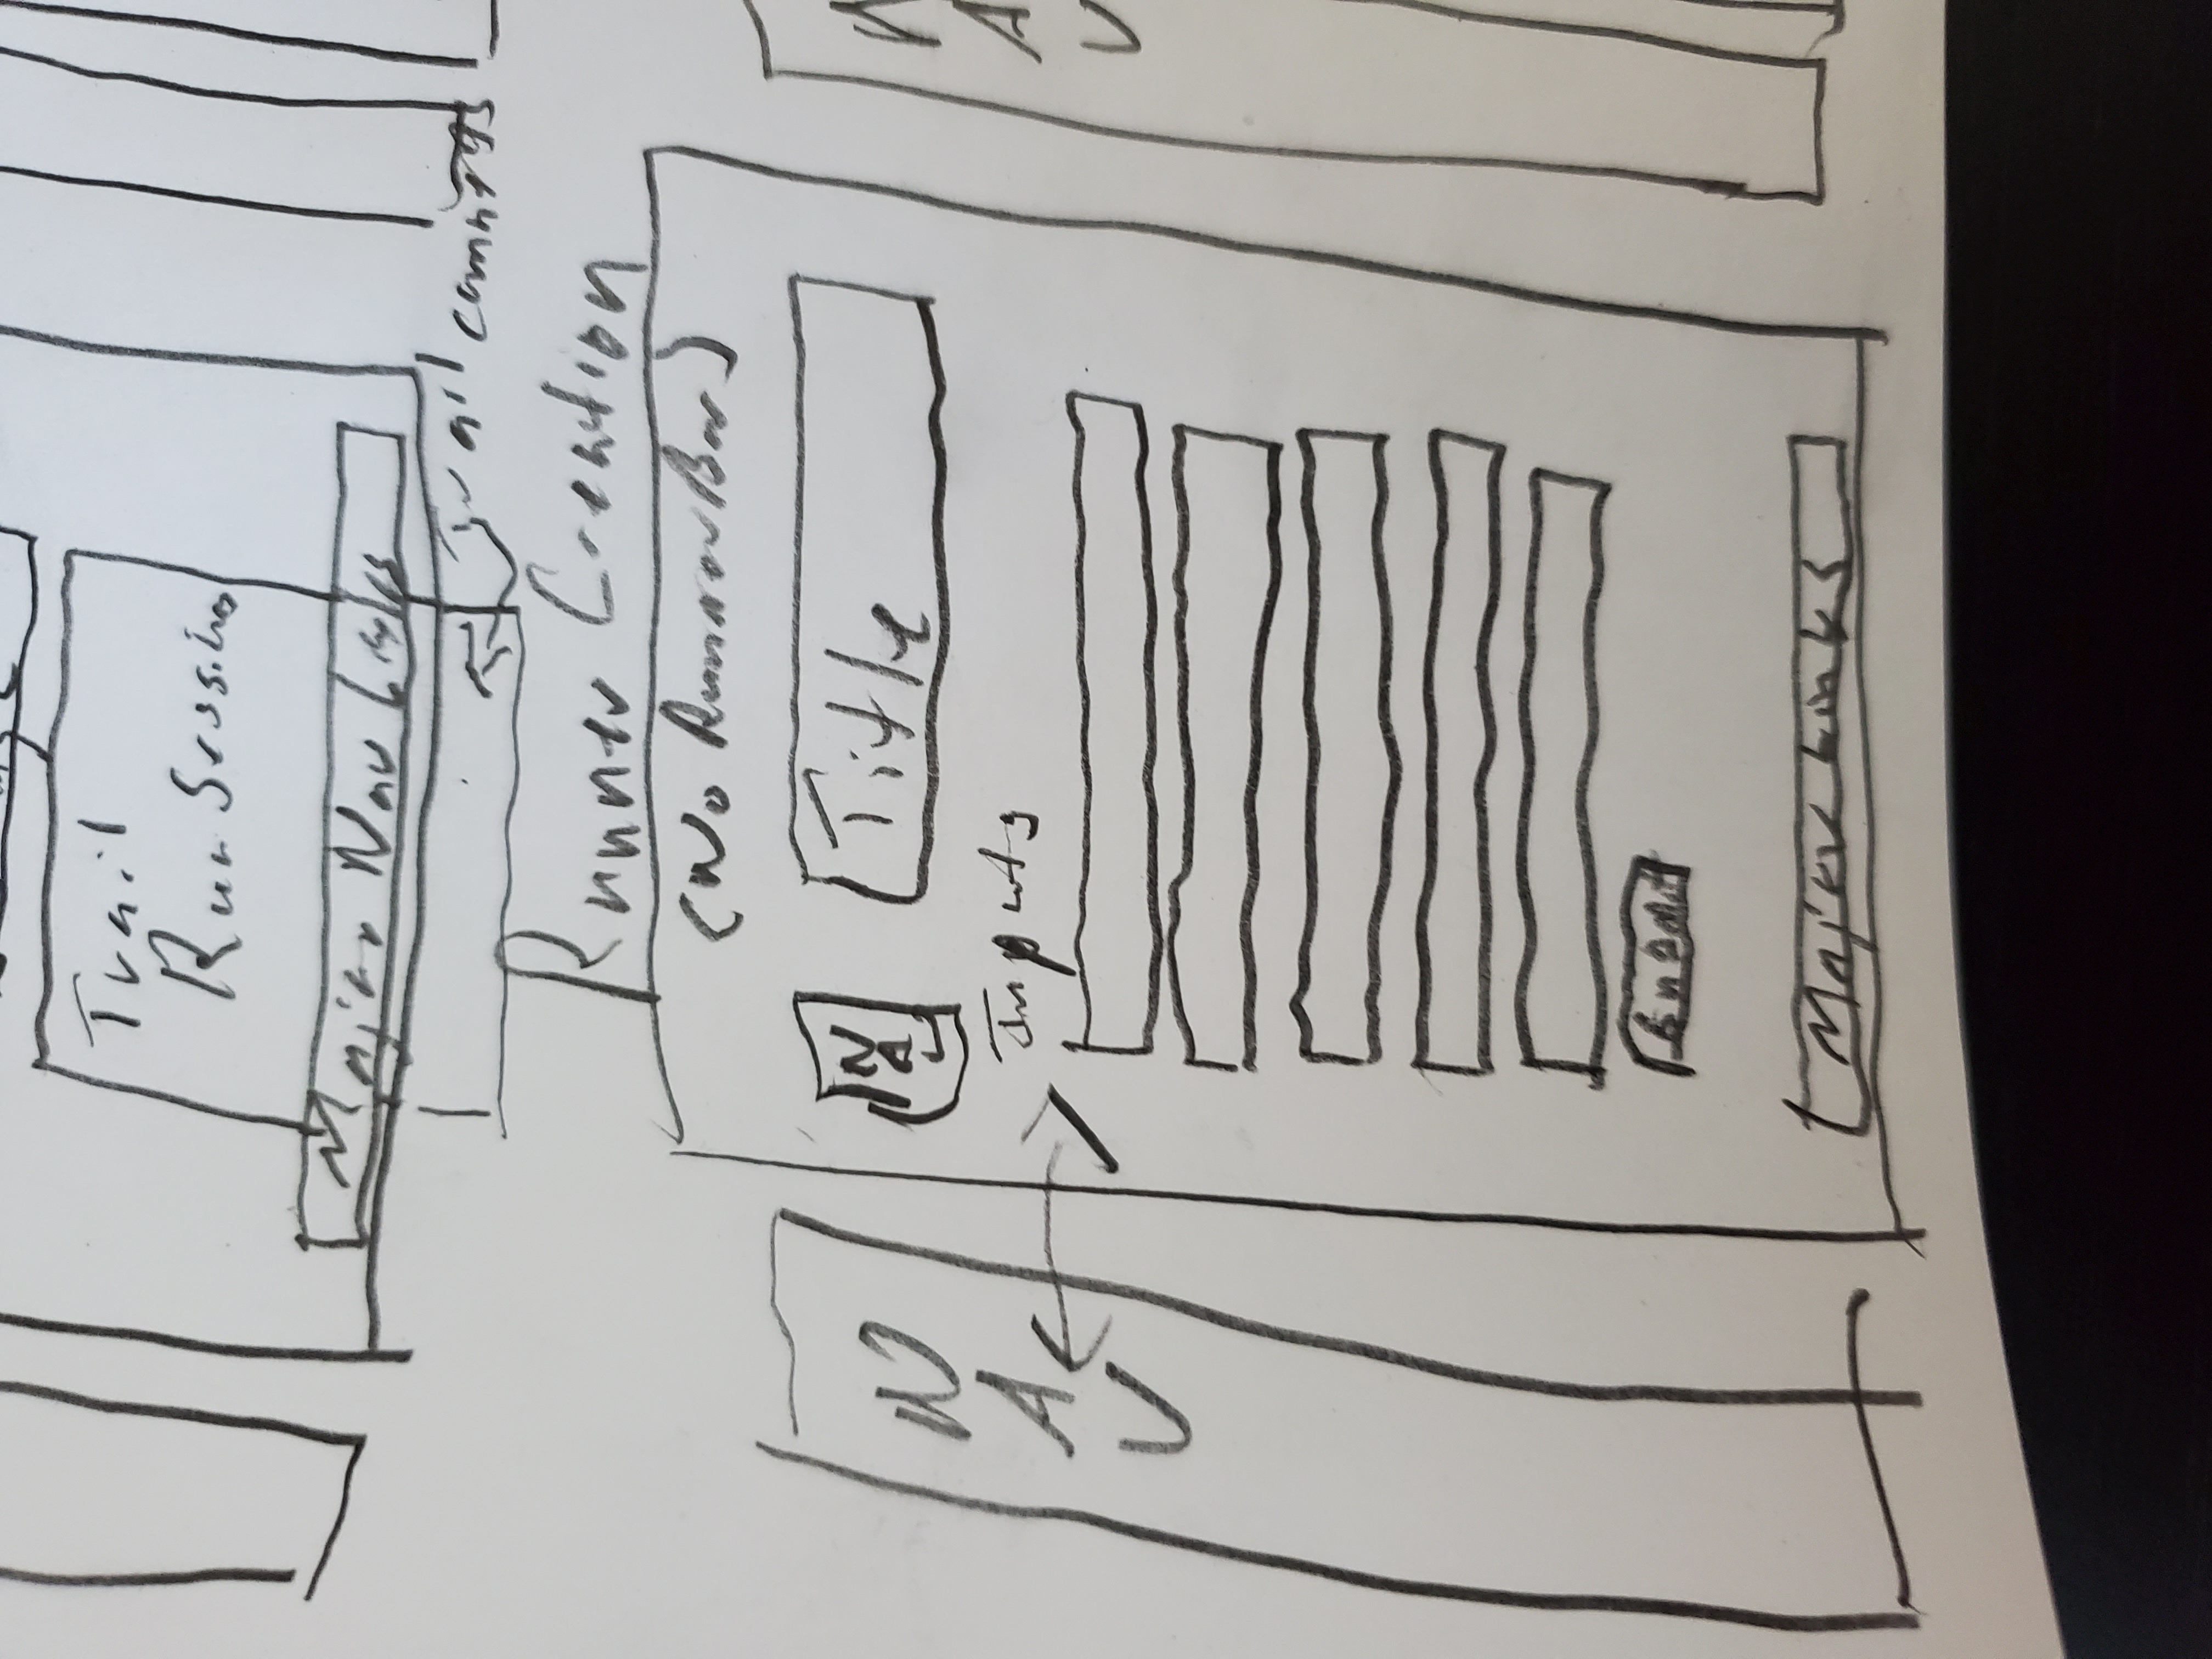 Trail
Run Session
Major Nav Links
Trail comments
Runner Creation
(No Runner Bar)
NAV
Title
NAV
Inputs
Submit
Major Links
NAV